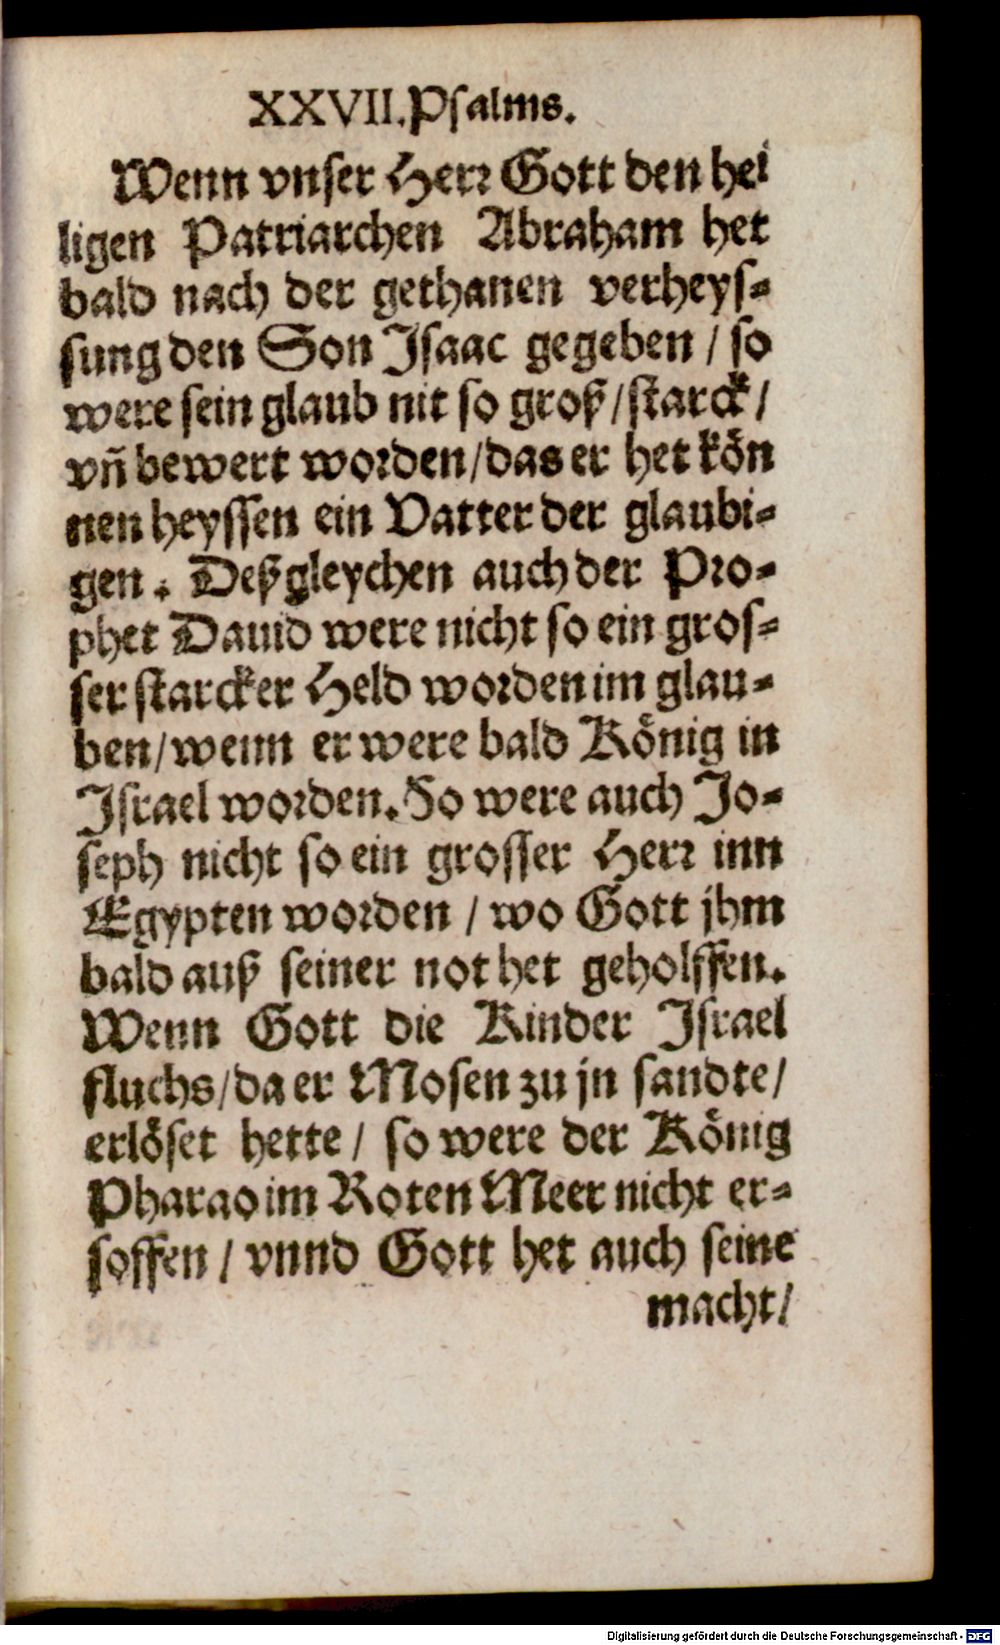 XXVII. Psalms.
Wenn vnser Herr Gott den hei
ligen Patriarchen Abraham het
bald nach der gethanen verheys-
sung den Son Isaac gegeben / so
were sein glaub nit so groß / starck /
vñ bewert worden / das er het kön
nen heyssen ein Vatter der glaubi-
gen. Deßgleychen auch der Pro-
phet Dauid were nicht so ein gros-
ser starcker Held worden im glau-
ben / wenn er were bald König in
Israel worden. So were auch Jo-
seph nicht so ein grosser Herr inn
Egypten worden / wo Gott jhm
bald auß seiner not het geholffen.
Wenn Gott die Kinder Israel
fluchs / da er Mosen zu jn sandte /
erlöset hette / so were der König
Pharao im Roten Meer nicht er-
soffen / vnnd Gott het auch seine
macht /
Digitalisierung gefördert durch die Deutsche Forschungsgemeinschaft - DFG